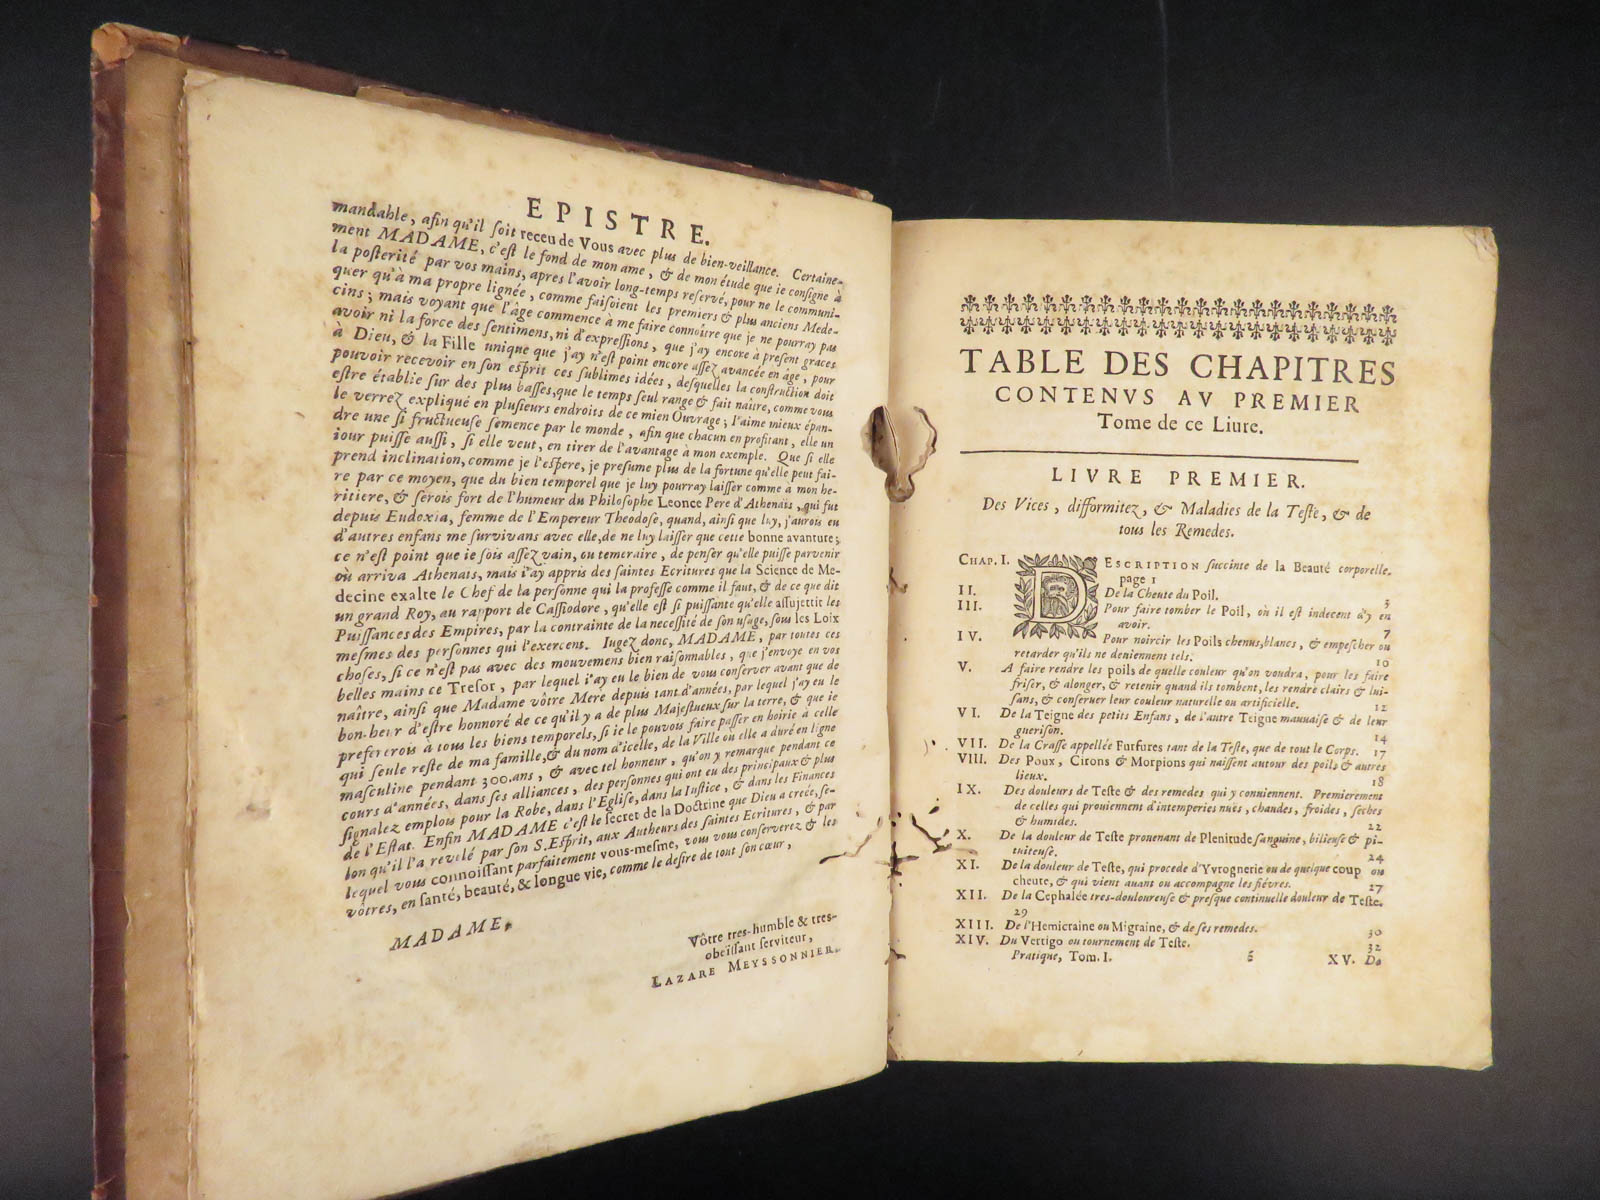 EPISTRE.
mandable, afin qu'il soit receu de Vous avec plus de bien-veillance. Certaine-
ment MADAME, c'est le fond de mon ame, & de mon étude que ie consigne à
la posterité par vos mains, apres l'avoir long-temps reservé, pour ne le communi-
quer qu'à ma propre lignée, comme faisoient les premiers & plus anciens Mede-
cins; mais voyant que l'âge commence à me faire connoître que je ne pourray pas
avoir ni la force des sentimens, ni d'expressions, que j'ay encore à present graces
à Dieu, & la Fille unique que j'ay n'est point encore assez avancée en âge, pour
pouvoir recevoir en son esprit ces sublimes idées, desquelles la construction doit
estre établie sur des plus basses, que le temps seul range & fait naître, comme vous
le verrez expliqué en plusieurs endroits de ce mien Ouvrage; l'aime mieux épan-
dre une si fructueuse semence par le monde, afin que chacun en profitant, elle un
iour puisse aussi, si elle veut, en tirer de l'avantage à mon exemple. Que si elle
prend inclination, comme je l'espere, je presume plus de la fortune qu'elle peut fai-
re par ce moyen, que du bien temporel que je luy pourray laisser comme à mon he-
ritiere, & serois fort de l'humeur du Philosophe Leonce Pere d'Athenais, qui fut
depuis Eudoxia, femme de l'Empereur Theodose, quand, ainsi que luy, j'aurois eu
d'autres enfans me survivans avec elle, de ne luy laisser que cette bonne avanture;
ce n'est point que ie sois assez vain, ou temeraire, de penser qu'elle puisse parvenir
où arriva Athenais, mais i'ay appris des saintes Ecritures que la Science de Me-
decine exalte le Chef de la personne qui la professe comme il faut, & de ce que dit
un grand Roy, au rapport de Cassiodore, qu'elle est si puissante qu'elle assujettit les
Puissances des Empires, par la contrainte de la necessité de son usage, sous les Loix
mesmes des personnes qui l'exercent. Iugez donc, MADAME, par toutes ces
choses, si ce n'est pas avec des mouvemens bien raisonnables, que j'envoye en vos
belles mains ce Tresor, par lequel i'ay eu le bien de vous conserver avant que de
naître, ainsi que Madame vôtre Mere depuis tant d'années, par lequel j'ay eu le
bon-heur d'estre honnoré de ce qu'il y a de plus Majestueux sur la terre, & que ie
prefererois à tous les biens temporels, si ie le pouvois faire passer en hoirie à celle
qui seule reste de ma famille, & du nom d'icelle, de la Ville où elle a duré en ligne
masculine pendant 300. ans, & avec tel honneur, qu'on y remarque pendant ce
cours d'années, dans ses alliances, des personnes qui ont eu des principaux & plus
signalez emplois pour la Robe, dans l'Eglise, dans la Iustice, & dans les Finances
de l'Estat. Enfin MADAME c'est le secret de la Doctrine que Dieu a creée, se-
lon qu'il l'a revelé par son S. Esprit, aux Autheurs des saintes Ecritures, & par
lequel vous connoissant parfaitement vous-mesme, vous vous conserverez & les
vôtres, en santé, beauté, & longue vie, comme le desire de tout son cœur,
MADAME,
Vôtre tres-humble & tres-
obeïssant serviteur,
LAZARE MEYSSONNIER.
TABLE DES CHAPITRES
CONTENVS AV PREMIER
Tome de ce Liure.
LIVRE PREMIER.
Des Vices, difformitez, & Maladies de la Teste, & de
tous les Remedes.
CHAP. I. DESCRIPTION succinte de la Beauté corporelle.
page 1
II. De la Cheute du Poil. 3
III. Pour faire tomber le Poil, où il est indecent d'y en
avoir. 7
IV. Pour noircir les Poils chenus, blancs, & empescher ou
retarder qu'ils ne deniennent tels. 10
V. A faire rendre les poils de quelle couleur qu'on voudra, pour les faire
friser, & alonger, & retenir quand ils tombent, les rendre clairs & lui-
sans, & conseruer leur couleur naturelle ou artificielle. 12
VI. De la Teigne des petits Enfans, de l'autre Teigne mauuaise & de leur
guerison. 14
VII. De la Crasse appellée Furfures tant de la Teste, que de tout le Corps. 17
VIII. Des Poux, Cirons & Morpions qui naissent autour des poils & autres
lieux. 18
IX. Des douleurs de Teste & des remedes qui y conuiennent. Premierement
de celles qui prouiennent d'intemperies nuës, chaudes, froides, seches
& humides. 22
X. De la douleur de Teste prouenans de Plenitude sanguine, bilieuse & pi-
tuiteuse. 24
XI. De la douleur de Teste, qui procede d'Yvrognerie ou de quelque coup ou
cheute, & qui vient auant ou accompagne les fiévres. 27
XII. De la Cephalée tres-douloureuse & presque continuelle douleur de Teste.
29
XIII. De l'Hemicraine ou Migraine, & de ses remedes. 30
XIV. Du Vertigo ou tournement de Teste. 32
Pratique, Tom. I. é XV. De